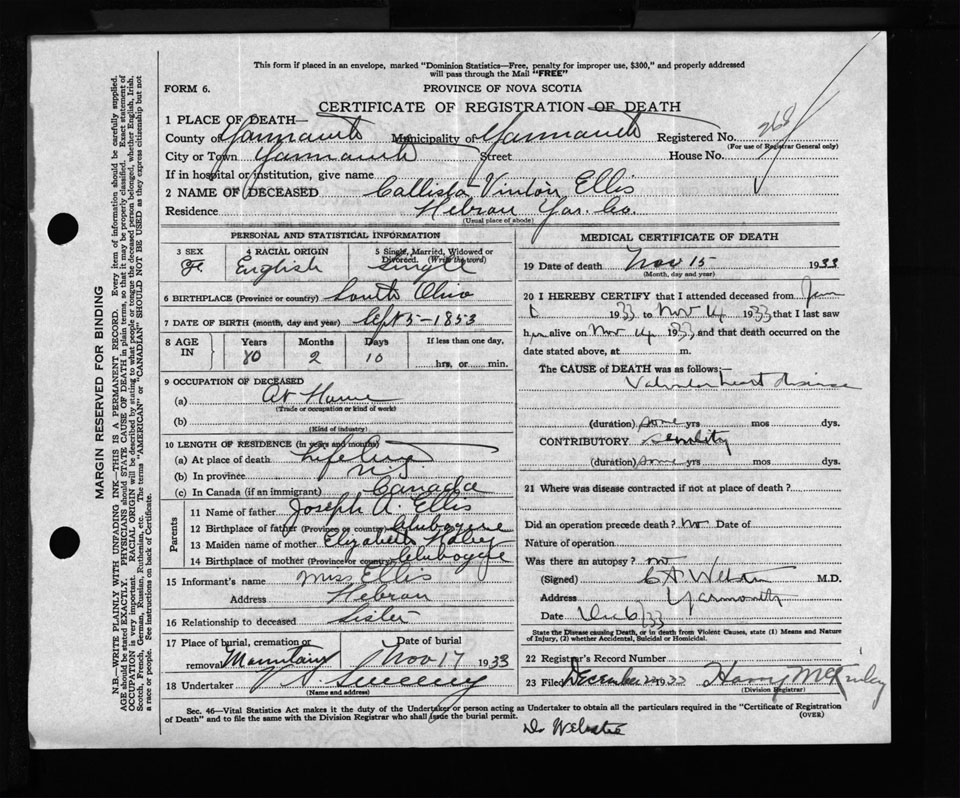 This form if placed in an envelope, marked "Dominion Statistics—Free, penalty for improper use, $300," and properly addressed
will pass through the Mail "FREE"
FORM 6.
PROVINCE OF NOVA SCOTIA
CERTIFICATE OF REGISTRATION OF DEATH
1 PLACE OF DEATH—
County of Yarmouth Municipality of Yarmouth Registered No. 268
(For use of Registrar General only)
City or Town Yarmouth Street House No.
If in hospital or institution, give name
2 NAME OF DECEASED Callista Vinton Ellis
Residence Hebron Yar. Co.
(Usual place of abode)
PERSONAL AND STATISTICAL INFORMATION
3 SEX 4 RACIAL ORIGIN 5 Single, Married, Widowed or Divorced. (Write the word)
F English Single
6 BIRTHPLACE (Province or country) South Ohio
7 DATE OF BIRTH (month, day and year) Sept 5-1853
8 AGE IN Years Months Days If less than one day,
80 2 10 hrs, or min.
9 OCCUPATION OF DECEASED
(a) At Home
(Trade or occupation or kind of work)
(b)
(Kind of industry)
10 LENGTH OF RESIDENCE (In years and months)
(a) At place of death Lifetime
(b) In province N.S.
(c) In Canada (if an immigrant) Canada
Parents
11 Name of father Joseph A. Ellis
12 Birthplace of father (Province or country)
13 Maiden name of mother Elizabeth
14 Birthplace of mother (Province or country)
15 Informant's name Miss Ellis
Address Hebron
16 Relationship to deceased Sister
17 Place of burial, cremation or removal Mountain Date of burial Nov 17 1933
18 Undertaker V. S. Sweeny
(Name and address)
MEDICAL CERTIFICATE OF DEATH
19 Date of death Nov 15 1933
(Month, day and year)
20 I HEREBY CERTIFY that I attended deceased from
1933 to Nov 14 1933 that I last saw
her alive on Nov 14 1933, and that death occurred on the
date stated above, at m.
The CAUSE of DEATH was as follows:—
Valvular heart disease
(duration) some yrs mos dys.
CONTRIBUTORY Senility
(duration) some yrs mos dys.
21 Where was disease contracted if not at place of death?
Did an operation precede death? no Date of
Nature of operation
Was there an autopsy? no
(Signed) C A Webster M.D.
Address Yarmouth
Date Dec 6/33
State the Disease causing Death, or in death from Violent Causes, state (1) Means and Nature
of Injury, (2) whether Accidental, Suicidal or Homicidal.
22 Registrar's Record Number
23 Filed December 1933 Harry McKinley
(Division Registrar)
Sec. 46—Vital Statistics Act makes it the duty of the Undertaker or person acting as Undertaker to obtain all the particulars required in the "Certificate of Registration
of Death" and to file the same with the Division Registrar who shall issue the burial permit.
(OVER)
Dr Webster
MARGIN RESERVED FOR BINDING
N.B.—WRITE PLAINLY WITH UNFADING INK—THIS IS A PERMANENT RECORD. Every item of information should be carefully supplied.
AGE should be stated EXACTLY. PHYSICIANS should STATE CAUSE OF DEATH in plain terms, so that it may be properly classified. Exact statement of
OCCUPATION is very important. RACIAL ORIGIN will be described by stating to what people or tongue the deceased person belonged, whether English, Irish,
Scotch, French, German, Russian, Ruthenian, etc. The terms "AMERICAN" or "CANADIAN" SHOULD NOT BE USED as they express citizenship but not
a race or people. See instructions on back of Certificate.